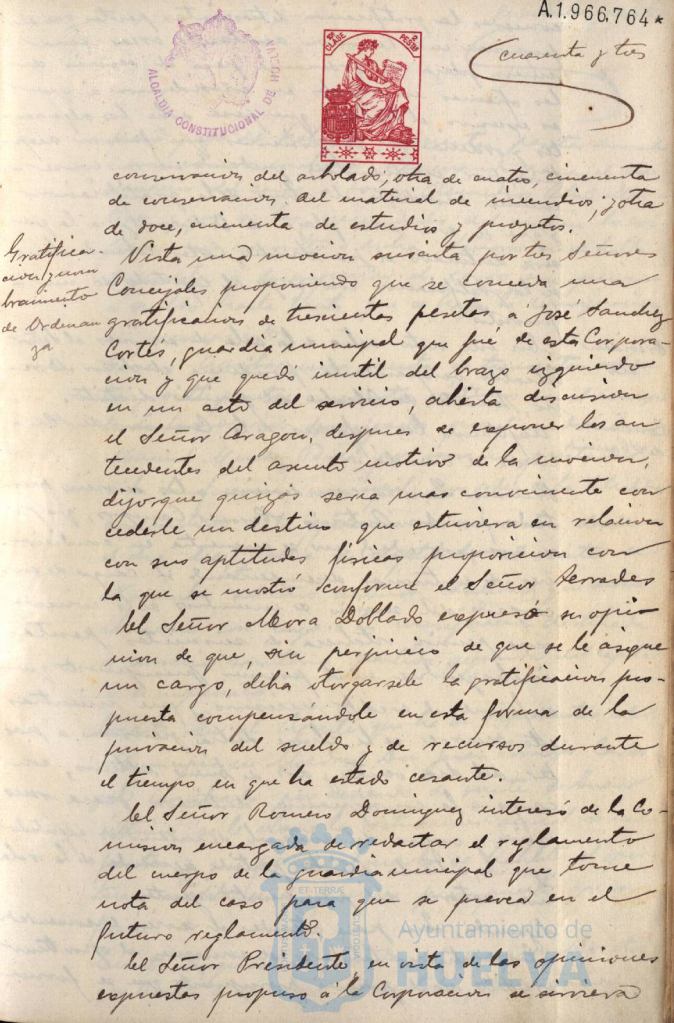 A.1.966.764*
cuarenta y tres
ALCALDIA CONSTITUCIONAL DE HUELVA
CLASE
PESETAS
conservacion del arbolado; otra de cuatro, cincuenta
de conservacion del material de incendios; y otra
de doce, cincuenta de estudios y proyectos.
Gratifica-
cion y nom
bramiento
de Ordenan
za
Vista una mocion suscrita por tres Señores
Concejales proponiendo que se conceda una
gratificacion de trescientas pesetas á José Sanchez
Cortés, guardia municipal que fué de esta Corpora-
cion y que quedó inutil del brazo izquierdo
en un acto del servicio, abierta discusion
el Señor Aragon, despues de exponer los an
tecedentes del asunto motivo de la mocion,
dijo que quizás seria mas conveniente con
cederle un destino que estuviera en relacion
con sus aptitudes fisicas proposicion con
la que se mostró conforme el Señor Terrades
El Señor Mora Doblado expresó su opi-
nion de que, sin perjuicio de que se le asigne
un cargo, debia otorgarsele la gratificacion pro-
puesta compensándole en esta forma de la
privacion del sueldo y de recursos durante
el tiempo en que ha estado cesante.
El Señor Romero Dominguez interesó de la Co-
mision encargada de redactar el reglamento
del cuerpo de la guardia municipal que tome
nota del caso para que se prevea en el
futuro reglamento.
El Señor Presidente, en vista de las opiniones
expuestas propuso á la Corporacion se sirviera
Ayuntamiento de
HUELVA